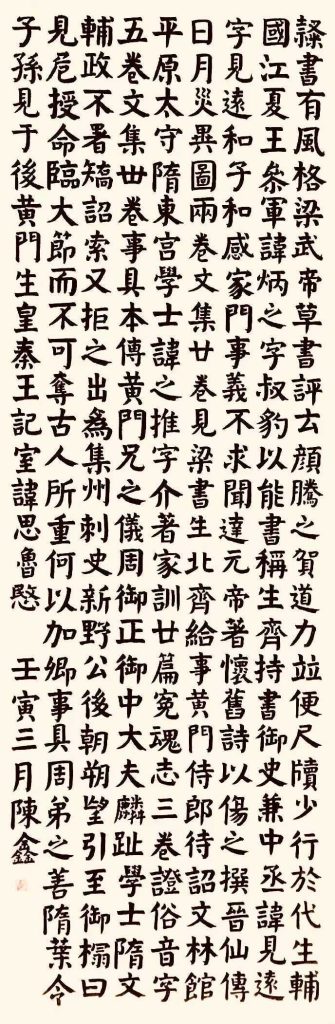 隸書有風格梁武帝草書評云顏騰之賀道力竝便尺牘少行於代生輔
國江夏王叅軍諱炳之字叔豹以能書稱生齊持書御史兼中丞諱見遠
字見遠和子和感家門事義不求聞達元帝著懷舊詩以傷之撰晉仙傳
日月災異圖兩卷文集廿卷見梁書生北齊給事黃門侍郎待詔文林館
平原太守隋東宮學士諱之推字介著家訓廿篇冤魂志三卷證俗音字
五卷文集丗卷事具本傳黃門兄之儀周御正御中大夫麟趾學士隋文
輔政不署矯詔索又拒之出爲集州刺史新野公後朝朔望引至御榻曰
見危授命臨大節而不可奪古人所重何以加卿事具周弟之善隋葉令
子孫見于後黃門生皇秦王記室諱思魯愍 壬寅三月陳鑫